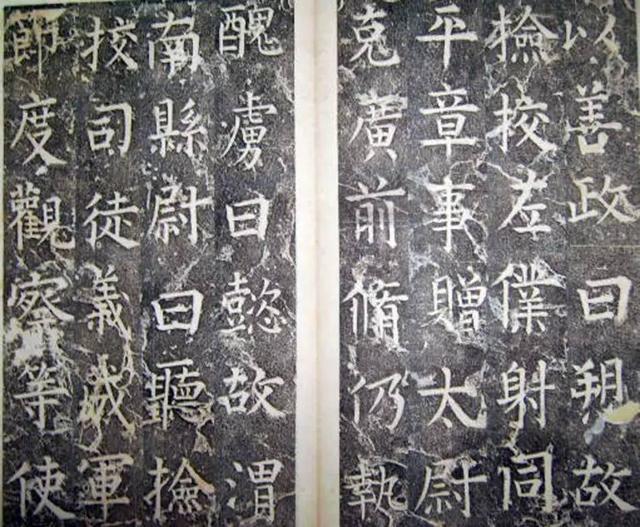 以善政曰愬故
撿挍左僕射同
平章事贈太尉
克廣前脩仍執
醜虜曰懿故渭
南縣尉曰聽撿
挍司徒義成軍
節度觀察等使